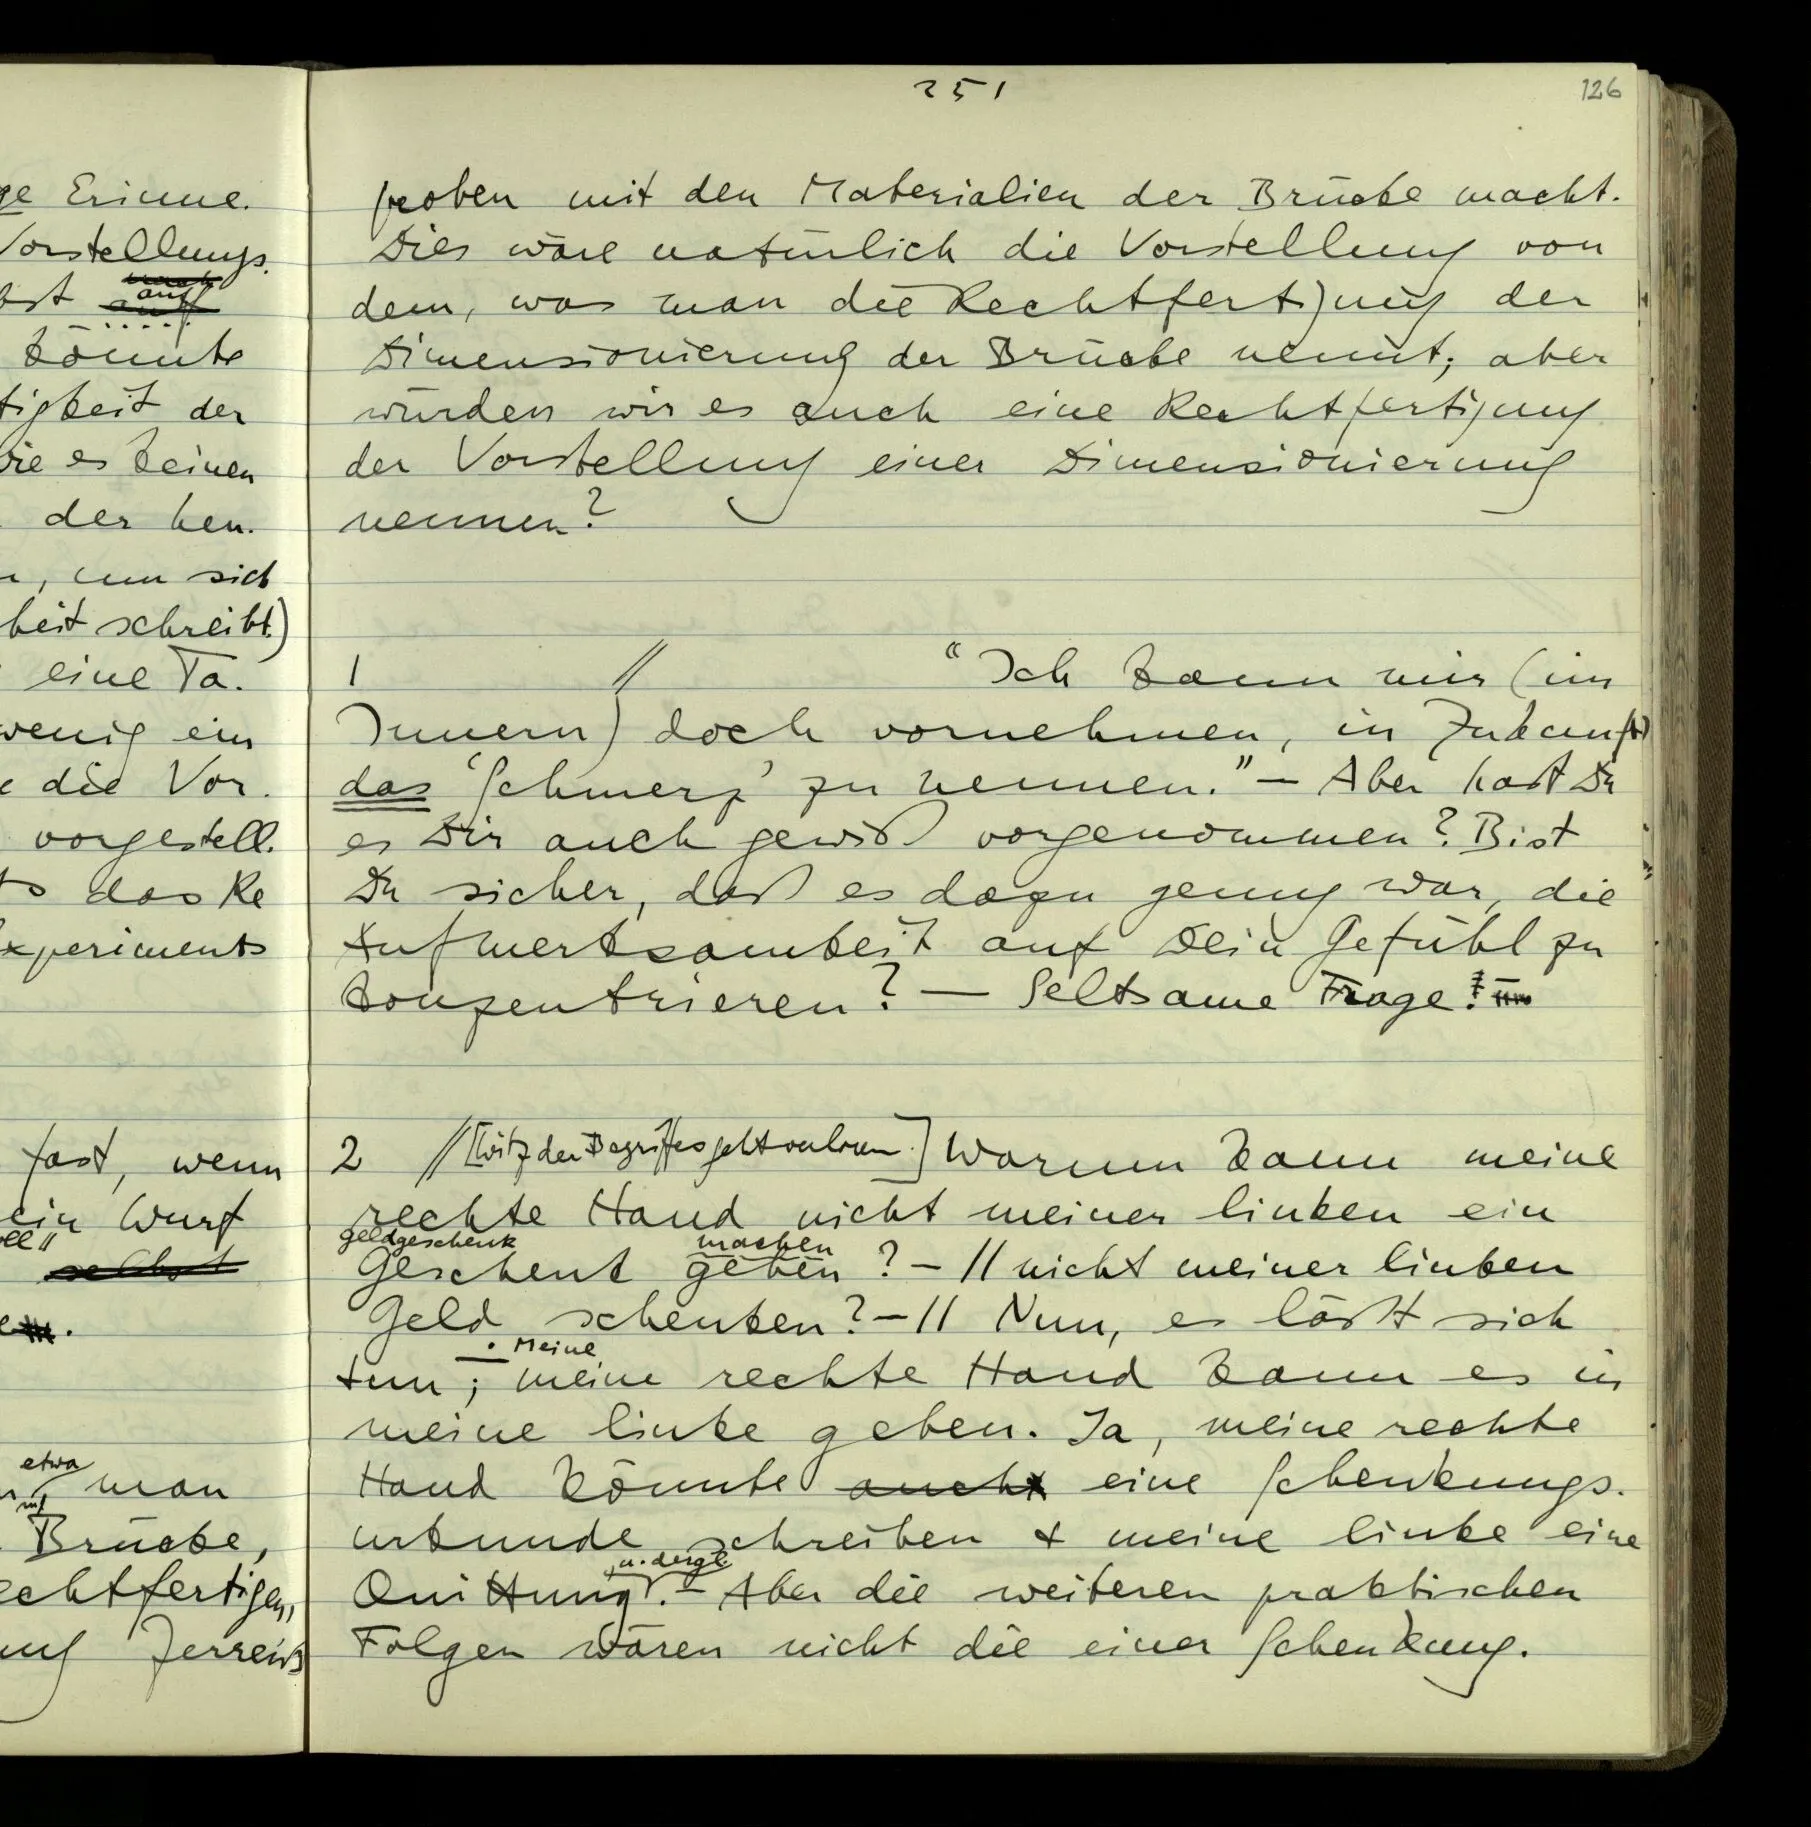 251
126
ge Erinne-
Vorstellungs-
auf
könnte
tigkeit der
wie es keinen
der hen-
, um sich
heit schreibt.)
eine Ta-
wenig ein
die Vor-
vorgestell-
das Re
xperiments
fast, wenn
ein Wurf
selbst
etwa
man
Brücke,
echtfertigen,
Zerreiß
proben mit den Materialien der Brücke macht.
Dies wäre natürlich die Vorstellung von
dem, was man die Rechtfertigung der
Dimensionierung der Brücke nennt; aber
würden wir es auch eine Rechtfertigung
der Vorstellung einer Dimensionierung
nennen?
1 // “Ich kann mir (im
Innern) doch vornehmen, in Zukunft
das ‘Schmerz’ zu nennen.” – Aber hast Du
es Dir auch gewiß vorgenommen? Bist
Du sicher, daß es dazu genug war, die
Aufmerksamkeit auf Dein Gefühl zu
konzentrieren? – Seltsame Frage!
2 // [Witz des Begriffes geht verloren.] Warum kann meine
rechte Hand nicht meiner linken ein
Geldgeschenk machen
Geschenk geben? – // nicht meiner linken
Geld schenken? – // Nun, es läßt sich
. Meine
tun; meine rechte Hand kann es in
meine linke geben. Ja, meine rechte
Hand könnte auch eine Schenkungs-
urkunde schreiben & meine linke eine
u. dergl.
Quittung. – Aber die weiteren praktischen
Folgen wären nicht die einer Schenkung.